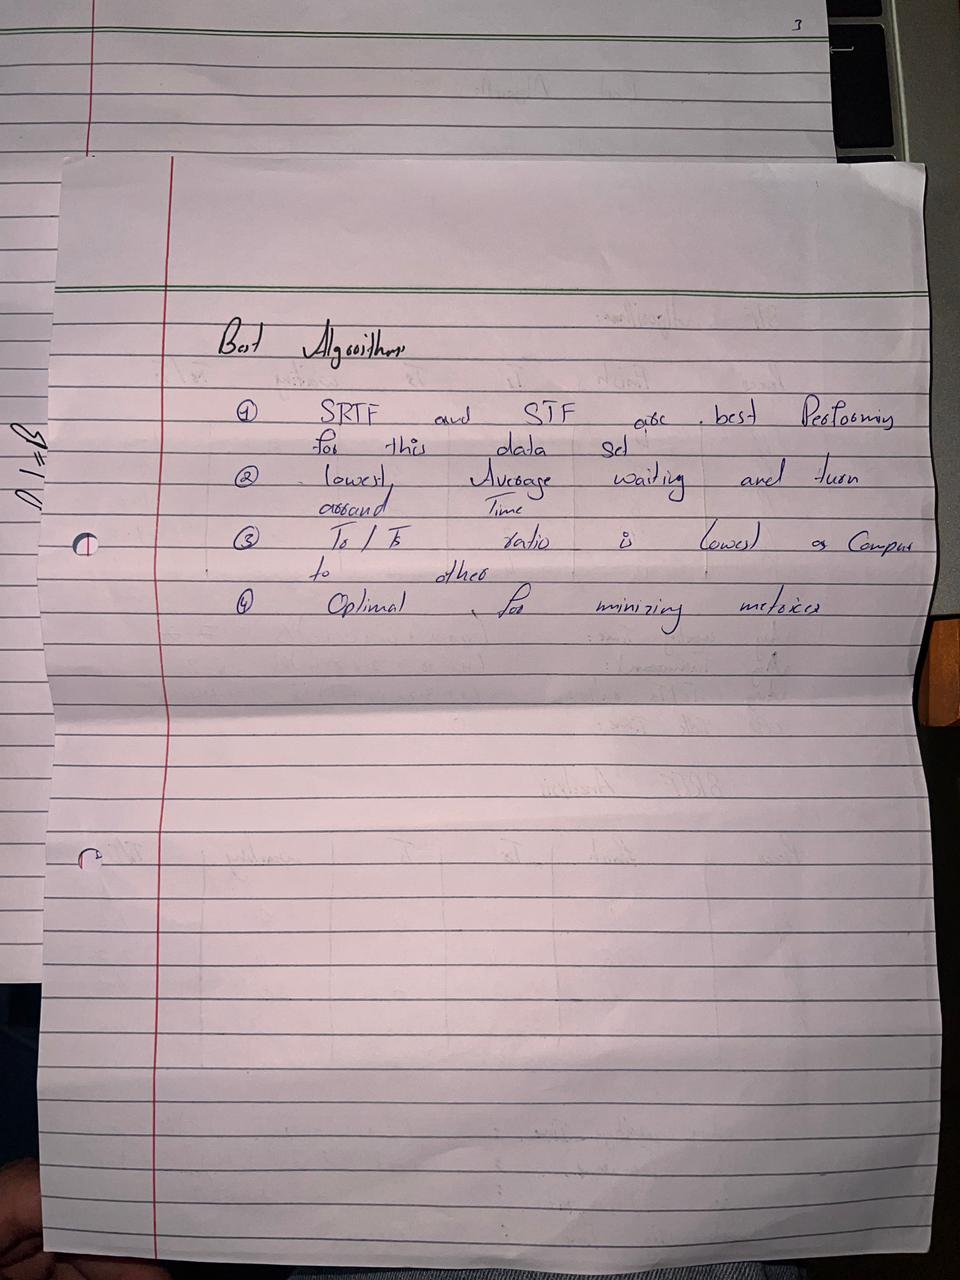 3
Best Algorithms
① SRTF and STF are best Performing
for this data set
② lowest Average waiting and turn
around Time
③ Ts / Ts ratio is lowest as Compar
to other
④ Optimal for minizing metrices